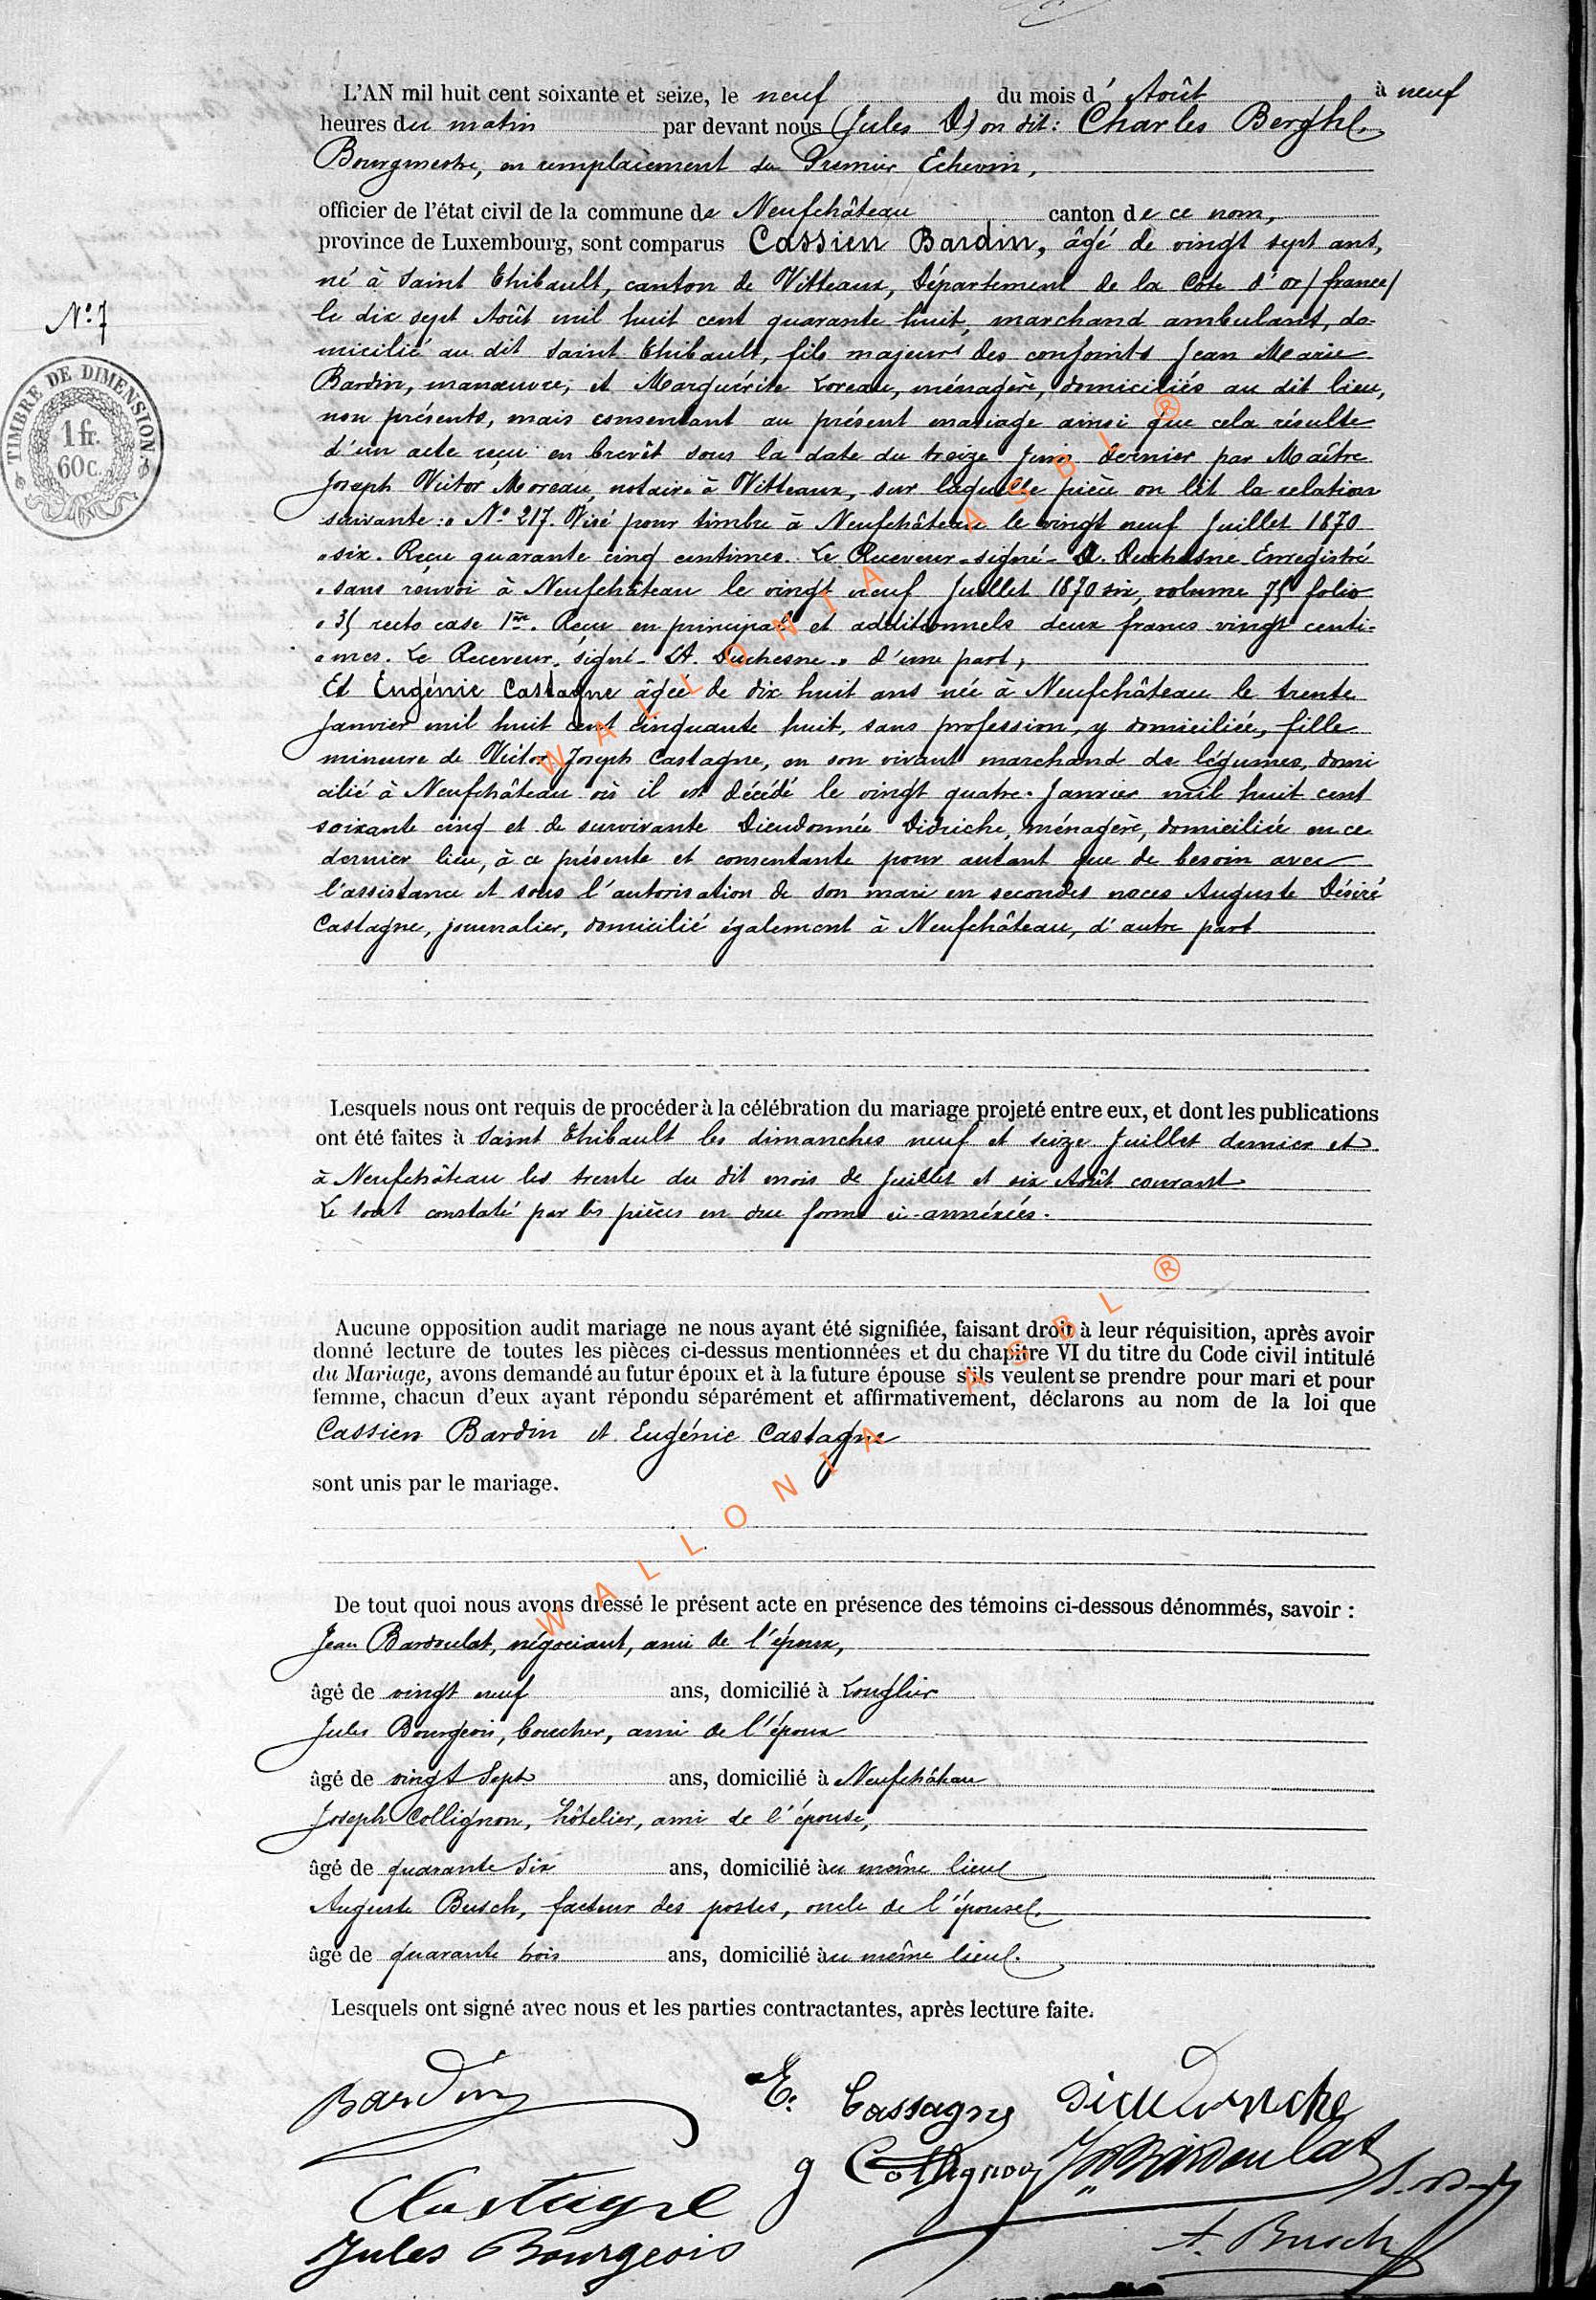 L'AN mil huit cent soixante et seize, le neuf du mois d' Août à neuf
heures du matin par devant nous (Jules D) on dit: Charles Bergh
Bourgmestre, en remplacement du Premier Echevin,
officier de l'état civil de la commune de Neufchâteau canton de ce nom,
province de Luxembourg, sont comparus Cassien Bardin, âgé de vingt sept ans,
né à Saint Thibault, canton de Vitteaux, Département de la Côte d'or (france)
le dix sept Août mil huit cent quarante huit, marchand ambulant, do-
micilié au dit Saint Thibault, fils majeur des conjoints Jean Marie
Bardin, manœuvre, et Marguérite Loreau, ménagère, domiciliés au dit lieu,
non présents, mais consentant au présent mariage ainsi que cela résulte
d'un acte reçu en brevêt sous la date du treize Juin dernier par Maître
Joseph Victor Moreau, notaire à Vitteaux, sur laquelle pièce on lit la relation
suivante: « No 217. Visé pour timbre à Neufchâteau le vingt neuf Juillet 1870
« six. Reçu quarante cinq centimes. Le Receveur - signé - A. Duchesne. Enregistré
« sans renvoi à Neufchâteau le vingt neuf Juillet 1870 six, volume 75 folio
« 35 recto case 1re. Reçu en principal et additionnels deux francs vingt centi-
« mes. Le Receveur, signé - A. Duchesne. » d'une part,
Et Eugénie Castagne âgée de dix huit ans née à Neufchâteau le trente
Janvier mil huit cent cinquante huit, sans profession, y domiciliée, fille
mineure de Victor Joseph Castagne, en son vivant marchand de légumes, domi
cilié à Neufchâteau où il est décédé le vingt quatre Janvier mil huit cent
soixante cinq et de survivante Dieudonnée Didriche, ménagère, domiciliée en ce
dernier lieu, à ce présente et consentante pour autant que de besoin avec
l'assistance et sous l'autorisation de son mari en secondes noces Auguste Désiré
Castagne, journalier, domicilié également à Neufchâteau, d'autre part
No 7
TIMBRE DE DIMENSION
1 fr.
60 c.
Lesquels nous ont requis de procéder à la célébration du mariage projeté entre eux, et dont les publications
ont été faites à Saint Thibault les dimanches neuf et seize Juillet dernier et
à Neufchâteau les trente du dit mois de Juillet et six Août courant
Le tout constaté par les pièces en due forme ci-annéxées.
Aucune opposition audit mariage ne nous ayant été signifiée, faisant droit à leur réquisition, après avoir
donné lecture de toutes les pièces ci-dessus mentionnées et du chapitre VI du titre du Code civil intitulé
du Mariage, avons demandé au futur époux et à la future épouse s'ils veulent se prendre pour mari et pour
femme, chacun d'eux ayant répondu séparément et affirmativement, déclarons au nom de la loi que
Cassien Bardin et Eugénie Castagne
sont unis par le mariage.
De tout quoi nous avons dressé le présent acte en présence des témoins ci-dessous dénommés, savoir :
Jean Bardoulat, négociant, ami de l'époux,
âgé de vingt neuf ans, domicilié à Longlier
Jules Bourgeois, boucher, ami de l'époux
âgé de vingt sept ans, domicilié à Neufchâteau
Joseph Collignon, hôtelier, ami de l'épouse,
âgé de quarante six ans, domicilié au même lieu
Auguste Busch, facteur des postes, oncle de l'épouse.
âgé de quarante trois ans, domicilié au même lieu.
Lesquels ont signé avec nous et les parties contractantes, après lecture faite.
Bardin E. Cassagne
Collignon Bardoulat
Castagne
Jules Bourgeois A. Busch
WALLONIA ASBL ®
WALLONIA ASBL ®